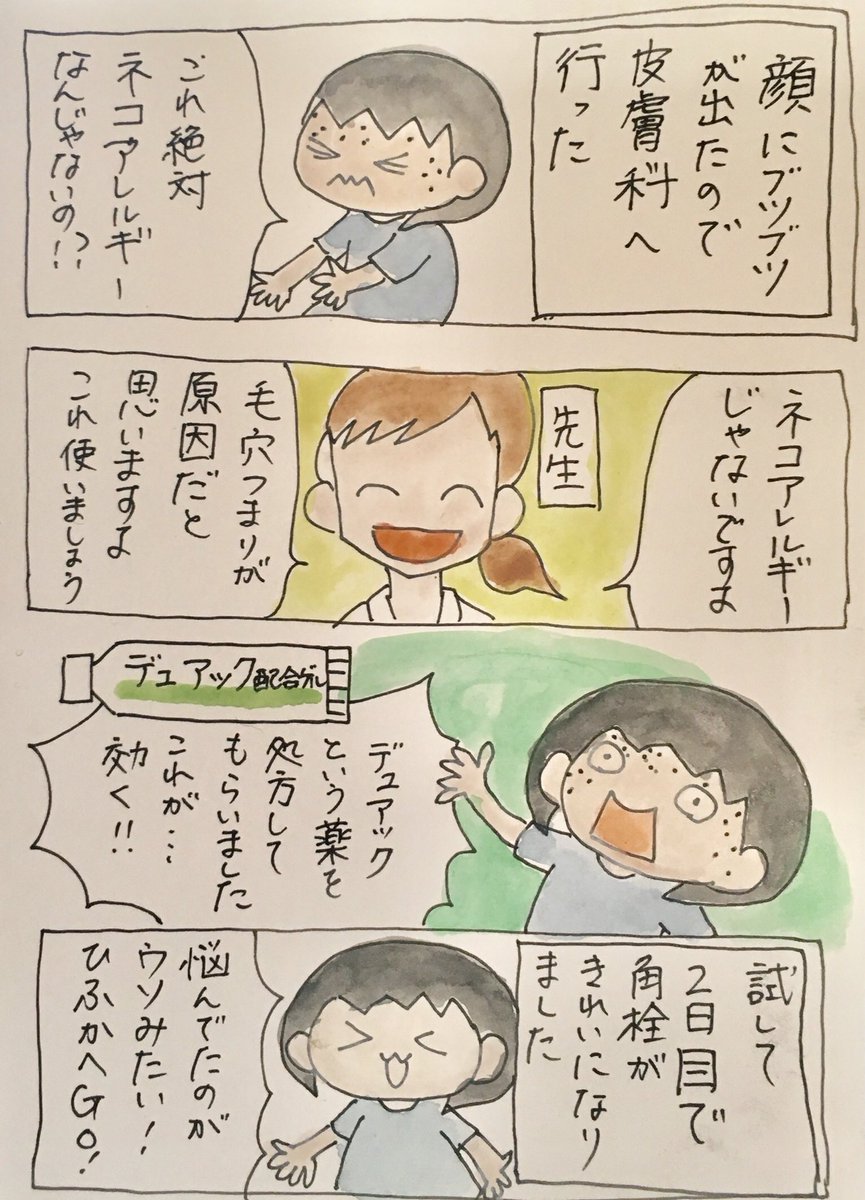 顔にブツブツ
が出たので
皮膚科へ
行った
これ絶対
ネコアレルギー
なんじゃないの!?
ネコアレルギー
じゃないですよ
先生
毛穴つまりが
原因だと
思いますよ
これ使いましょう
デュアック配合ゲル
デュアック
という薬を
処方して
もらいました
これが…
効く!!
試して
2日目で
角栓が
きれいになり
ました
悩んでたのが
ウソみたい!
ひふかへGO!